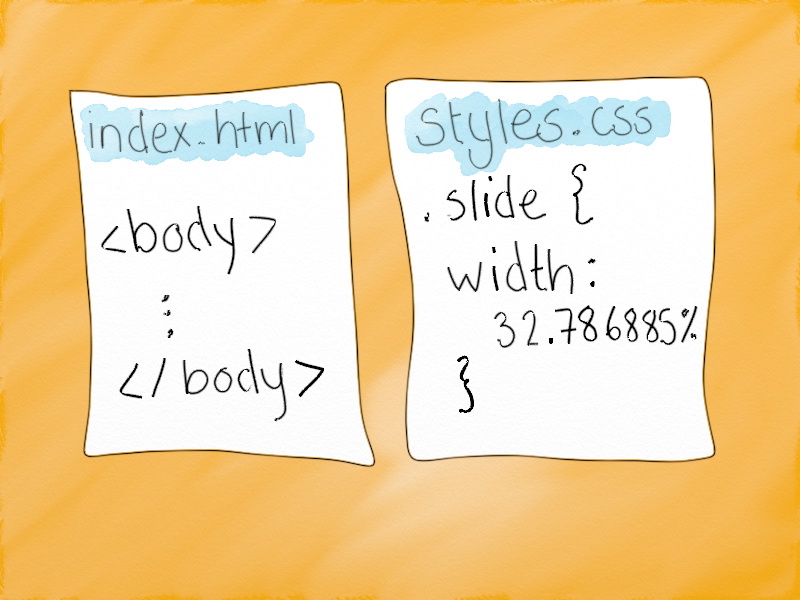 index.html
<body>
⋮
</body>
styles.css
.slide {
width:
32.786885%
}